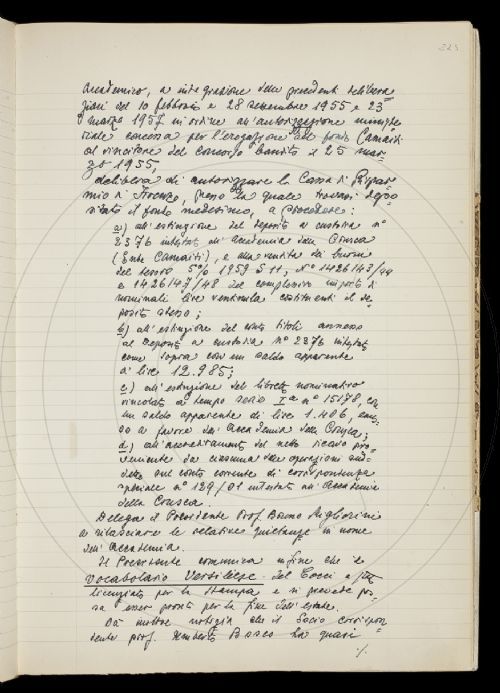 223
Accademico, a integrazione delle precedenti delibera
zioni del 10 febbraio e 28 settembre 1955 e 23
marzo 1957 in ordine all'autorizzazione ministe
riale concessa per l'erogazione del fondo Camaiti
al vincitore del concorso bandito il 25 mar-
zo 1955,
delibera di autorizzare la Cassa di Rispar
mio di Firenze, presso la quale trovasi depo-
sitato il fondo medesimo, a procedere:
a) all'estinzione del deposito a custodia n°
2376 intestato all'Accademia della Crusca
(Ente Camaiti), e alla vendita dei buoni
del tesoro 5% 1959 S 11, N° 1426143/44
e 1426147/48 del complessivo importo di
nominali lire ventimila costituenti il de-
posito stesso;
b) all'estinzione del conto titoli annesso
al deposito a custodia n° 2376 intestato
come sopra con un saldo apparente
di lire 12.985;
c) all'estinzione del libretto nominativo
vincolato a tempo serie Iª n° 15178, con
un saldo apparente di lire 1.406, emes-
so a favore dell'Accademia della Crusca;
d) all'accreditamento del netto ricavo pro-
veniente da ciascuna delle operazioni sud-
dette sul conto corrente di corrispondenza
speciale n° 129/01 intestato all'Accademia
della Crusca.
Delega il Presidente Prof. Bruno Migliorini
a rilasciare le relative quietanze in nome
dell'Accademia.
Il Presidente comunica infine che il
Vocabolario Versiliese del Cocci è
licenziato per la stampa e si prevede pos-
sa esser pronto per la fine dell'estate.
Dà inoltre notizia che il Socio corrispon-
dente prof. Umberto Bosco ha quasi
./.